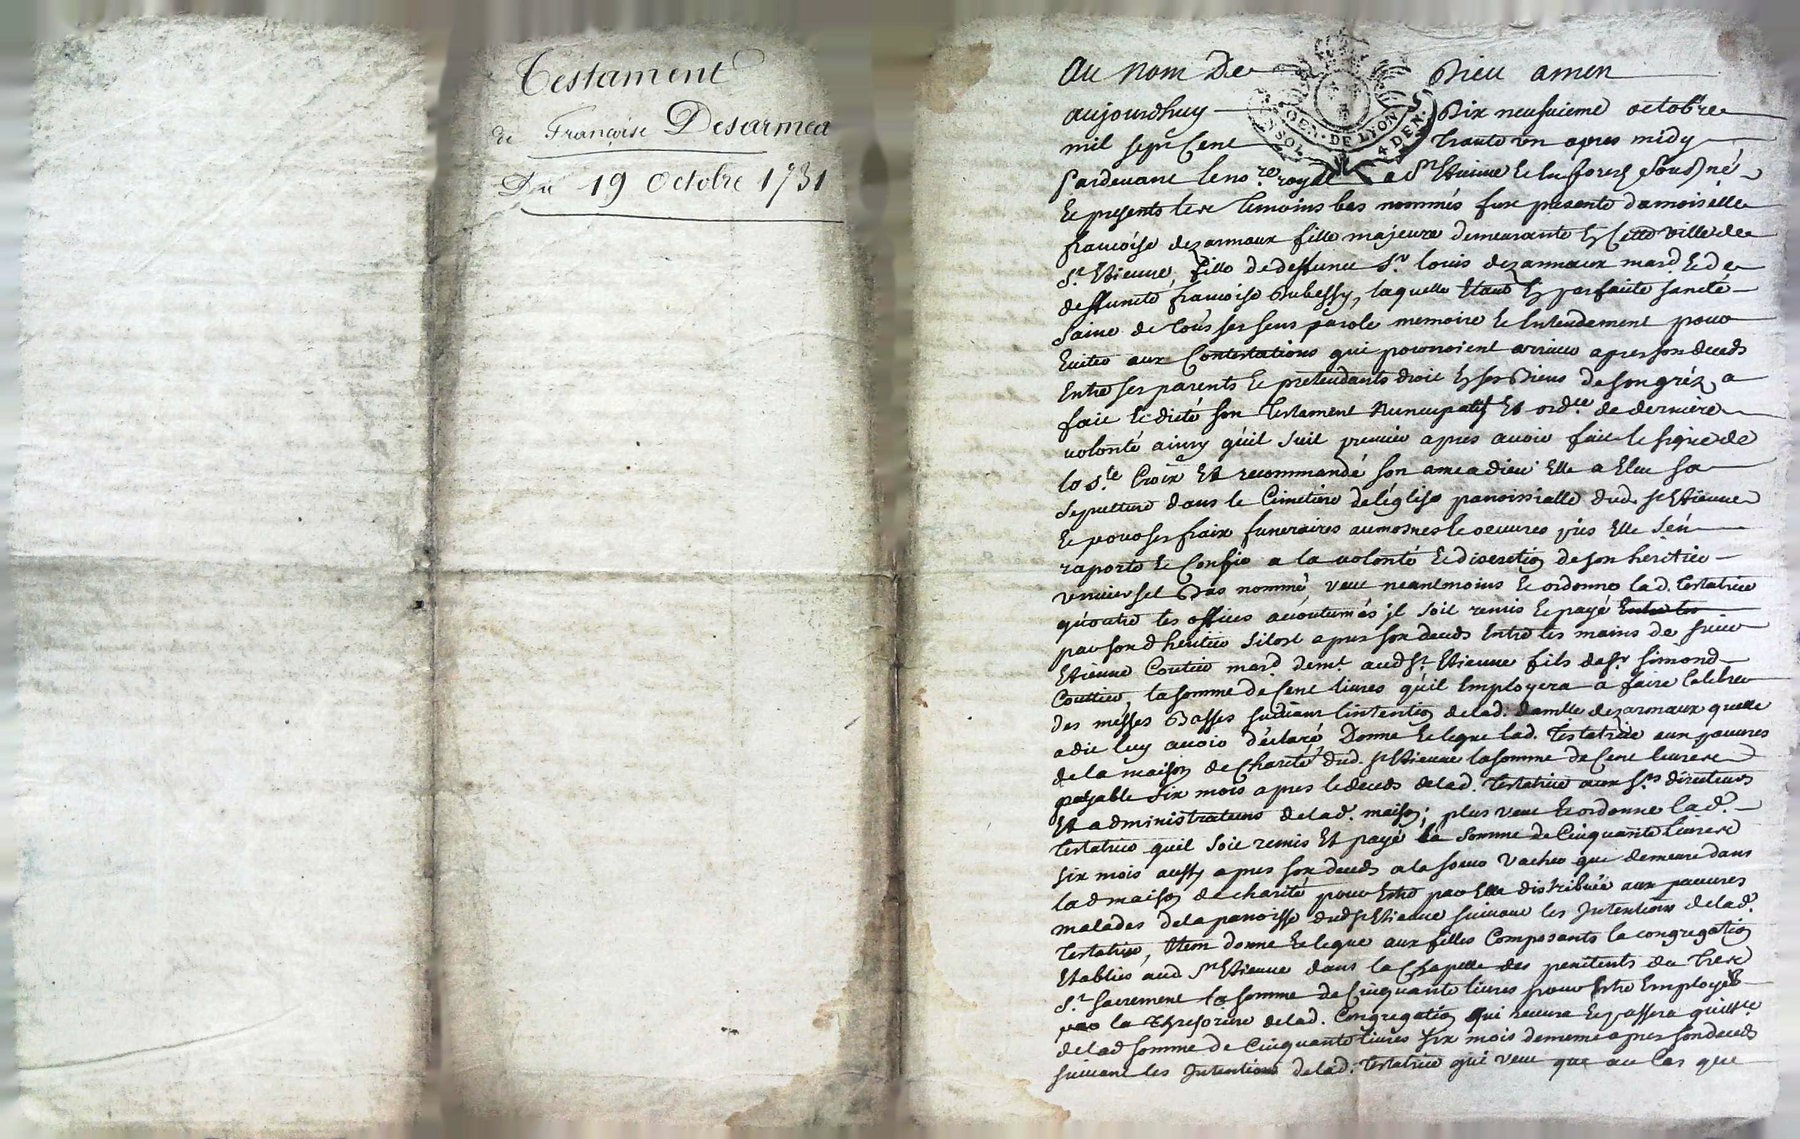 Testament
de Françoise Desarmea
Du 19 Octobre 1731
Au nom De Dieu amen
aujourdhuy Dix neufuieme octobre
mil sept Cent trante un apres midy
GEN. DE LYON
UN SOL 4 DEN.
pardeuant le no.re royal a St Etienne En forest sousné
Et presents les temoins bas nommés fut presente damoiselle
francoise dezarmaux fille majeure demeurante En Cette ville de
St. Etienne, fille de deffunct Sr. louis dezarmaux mard. Et de
deffuncte francoise Dubessy, laquelle Etant En parfaite santé
saine de tous ses sens parole memoire Et Entendement pour
Euiter aux Contestations qui pouroient arriuer apres son deceds
Entre ses parents Et pretendants droit En ses Biens de son gréz a
fait Et dicté son Testament Nuncupatif Et ordce de derniere
volonté ainsy qu'il suit premier apres auoir fait le signe de
la Ste Croix Et recommandé son ame a dieu Elle a Eleu sa
sepulture dans le Cimetiere de l'église paroissialle dud. St Etienne
Et pour ses fraix funeraires aumosnes Et oeuures pies Elle s'en
raporte Et Confie a la volonté Et discretion de son heritier
vniuersel Bas nommé, veut neantmoins Et ordonne lad. Testatrice
qu'outre les offices acoutumés il soit remis Et payé Entre les
par sond heritier sitost apres son deceds Entre les mains de sieur
Etienne Couttier mard. demt. aud St. Etienne fils de Sr Simond
Couttier, la somme de Cent liures qu'il Employera a faire Celebrer
des messes Basses suiuant l'intention de lad. damlle dezarmaux quelle
a dit luy auoir déclaré Donne Et legue lad. Testatrice aux pauures
de la maison de Charité dud. St Etienne la somme de Cent liures
payable six mois apres le deceds de lad. Testatrice aux Srs directeurs
Et administrateurs de lad. maison; plus veut Et ordonne lad.
Testatrice qu'il soit remis Et payé la somme de Cinquante liures
six mois aussy apres son deceds a la soeur Vacher que demeure dans
lad maison de charité pour Etre par Elle distribuée aux pauures
malades de la paroisse dud St Etienne suiuant les Intentions de lad.
Testatrice, Item donne Et legue aux filles Composants la congregation
Etablies aud St Etienne dans la Chapelle des penitents du tres
St. Sacrement la somme de Cinquante liures pour Etre Employés
par la thresoriere de lad. Congregation qui receura Et passera quittce
de lad somme de Cinquante liures six mois de meme apres son deceds
suiuant les Intentions de lad. Testatrice qui veut que au Cas que